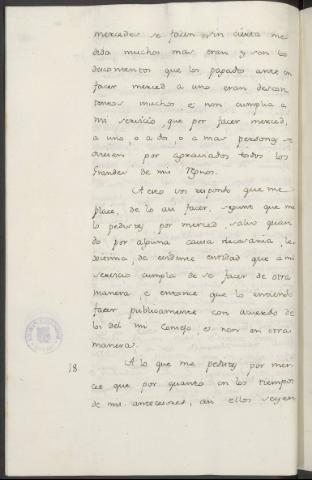 mercedes se facen sin cierta me
dida muchos mas eran y son los
descontentos que los pagados ca en
facer merced a uno eran descon
tentos muchos e non cumplia a
mi servicio, que por facer merced,
a uno, o a dos, o a mas personas se
oviesen por agraviados todos los
Grandes de mis Regnos.
A esto vos respondo que me
place, de lo asi facer, segunt que me
lo pedistes por merced, salvo quan
do por alguna causa necesaria, le
xitima, de evidente utilidad que a mi
servicio cumpla de se facer de otra
manera, e entonce que lo entiendo
facer publicamente con acuerdo de
los del mi Consejo, e non en otra
manera.
18. A lo que me pedistes por mer
ced que por quanto en los tiempos
de mis antecesores, asi ellos seyen